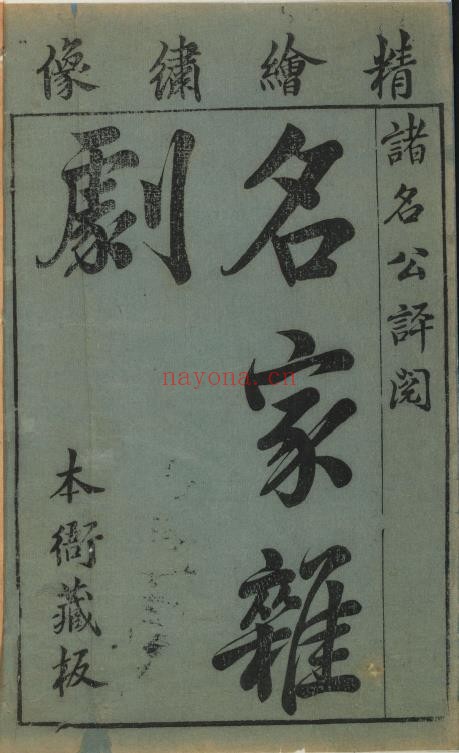 精繪繡像
諸名公評閱
名家雜
劇
本衙藏板
nayona.cn